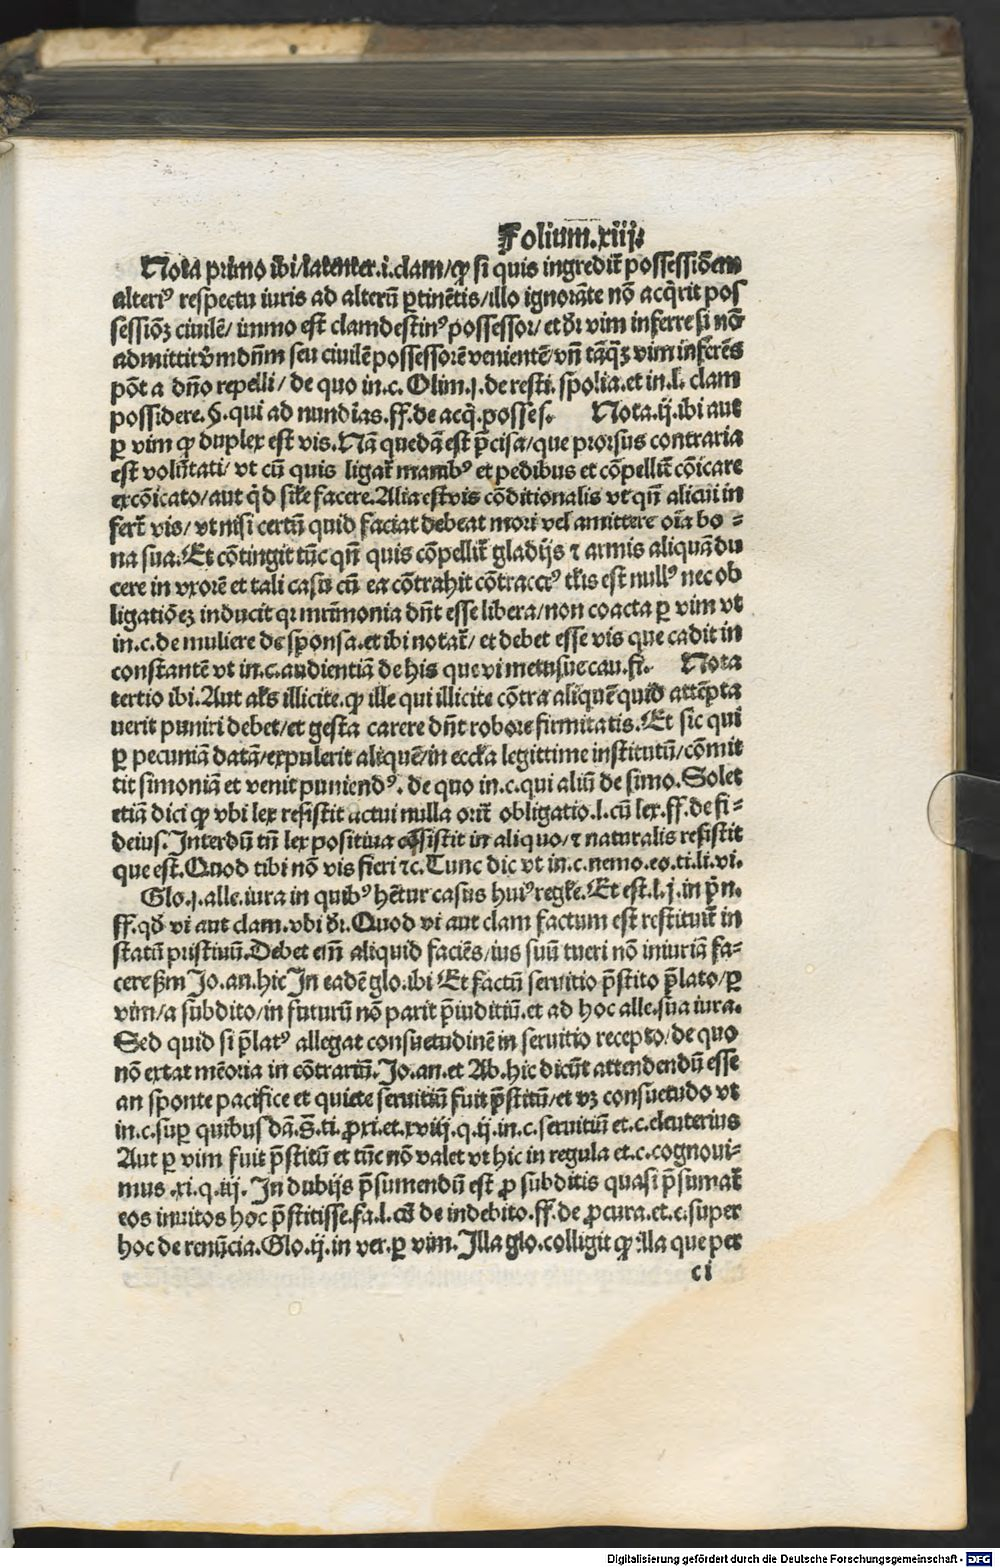 Folium.xiij.
Nota primo ibi/latenter.i.clam/ꝙ si quis ingredit̃ possessiõem
alteriꝰ respectu iuris ad alterũ ꝑtinẽtis/illo ignorãte nõ acq̃rit pos
sessiõꝫ ciuilẽ/immo est clamdestinꝰ possessor/et dr̃ vim inferre si nõ
admittit v̾m dñm seu ciuilẽ possessorẽ venientẽ/vñ tãq̃ꝫ vim inferẽs
põt a dño repelli/ de quo in.c. Olim.j.de resti. spolia.et in.l. clam
possidere.§.qui ad nundinas.ff.de acq̃.posses. Nota.ij.ibi aut
ꝑ vim ꝙ duplex est vis.Nã quedã est p̃cisa/que prorsus contraria
est volũtati/ vt cũ quis ligat̃ manibꝰ et pedibus et cõpellit̃ cõicare
excõicato/aut q̃d sil̃e facere.Alia est vis cõditionalis vt qñ alicui in
fert̃ vis/ vt nisi certũ quid faciat debeat mori vel amittere oĩa bo =
na sua.Et cõtingit tũc qñ quis cõpellit̃ gladijs ⁊ armis aliquã du
cere in vxorẽ et tali casu cũ ea cõtrahit cõtractꝰ tl̃is est nullꝰ nec ob
ligatiõeꝫ inducit qꝛ mr̃imonia dñt esse libera/non coacta ꝑ vim vt
in.c.de muliere de sponsa.et ibi notat̃/ et debet esse vis que cadit in
constantẽ vt in.c.audientiã de his que vi metusue cau.fi. Nota
tertio ibi.Aut al̃s illicite.ꝙ ille qui illicite cõtra aliquẽ quid attẽpta
uerit puniri debet/et gesta carere dñt robore firmitatis.Et sic qui
ꝑ pecuniã datã/expulerit aliquẽ/in eccl̃a legittime institutũ/cõmit
tit simoniã et venit puniendꝰ. de quo in.c.qui aliũ de simo.Solet
etiã dici ꝙ vbi lex resistit actui nulla orit̃ obligatio.l.cũ lex.ff.de fi=
deius.Interdũ tñ lex positiua cõsistit in aliquo/⁊ naturalis resistit
que est.Quod tibi nõ vis fieri ⁊c.Tunc dic vt in.c.nemo.eo.ti.li.vi.
Glo.j.alle.iura in quibꝰ hẽtur casus huiꝰ regl̃e.Et est.l.j.in p̃n.
ff.qđ vi aut clam.vbi dr̃.Quod vi aut clam factum est restituit̃ in
statũ pristinũ.Debet em̃ aliquid faciẽs/ius suũ tueri nõ iniuriã fa=
cere ẜm Jo.an.hic In eadẽ glo.ibi Et factũ seruitio p̃stito p̃lato/ꝑ
vim/a subdito/in futurũ nõ parit p̃iuditiũ.et ad hoc alle.sua iura.
Sed quid si p̃latꝰ allegat consuetudinẽ in seruitio recepto/de quo
nõ extat mẽoria in cõtrariũ.Jo.an.et Ab.hic dicũt attendendũ esse
an sponte pacifice et quiete seruitiũ fuit p̃stitũ/et vꝫ consuetudo vt
in.c.suꝑ quibusdã.§.ti.ꝓxi.et.xviij.q.ij.in.c.seruitiũ et.c.eleuterius
Aut ꝑ vim fuit p̃stitũ et tũc nõ valet vt hic in regula et.c.cognoui=
mus.xi.q.iij. In dubijs p̃sumendũ est ꝓ subditis quasi p̃sumat̃
eos inuitos hoc p̃stitisse.fa.l.cũ de indebito.ff.de ꝓcura.et.c.super
hoc de renũcia.Glo.ij.in ver.ꝑ vim.Illa glo.colligit ꝙ illa que per
c i
Digitalisierung gefördert durch die Deutsche Forschungsgemeinschaft - DFG